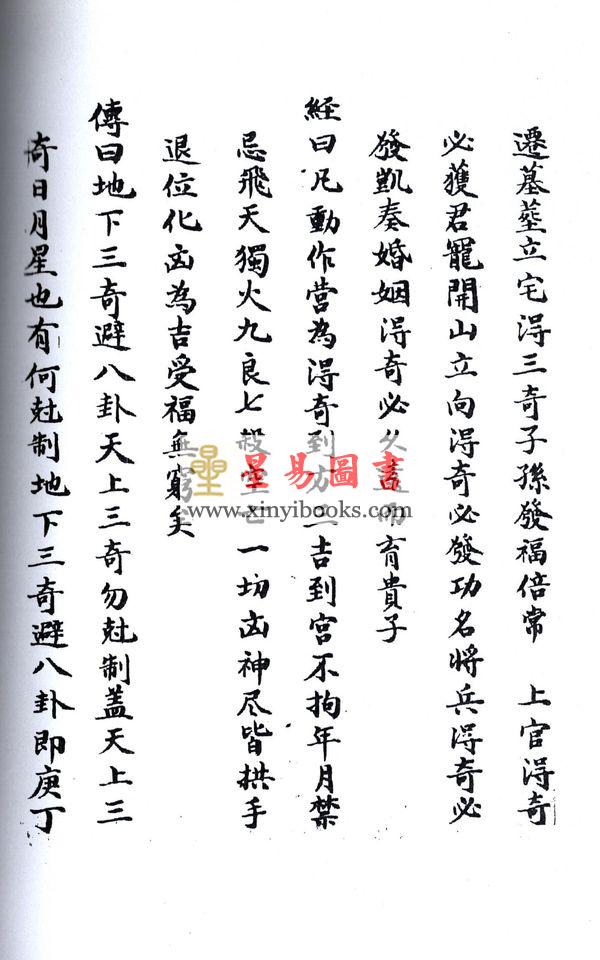 遷墓塟立宅淂三奇子孫發福倍常　上官淂奇
必獲君寵開山立向淂奇必發功名將兵淂奇必
發凱奏婚姻淂奇必育貴子
經曰凡動作營為淂奇到方二吉到宮不拘年月禁
忌飛天獨火九良七殺空亡一切凶神尽皆拱手
退位化凶為吉受福無窮矣
傳曰地下三奇避八卦天上三奇勿尅制盖天上三
奇日月星也有何尅制地下三奇避八卦即庚丁
星易圖書
www.xinyibooks.com